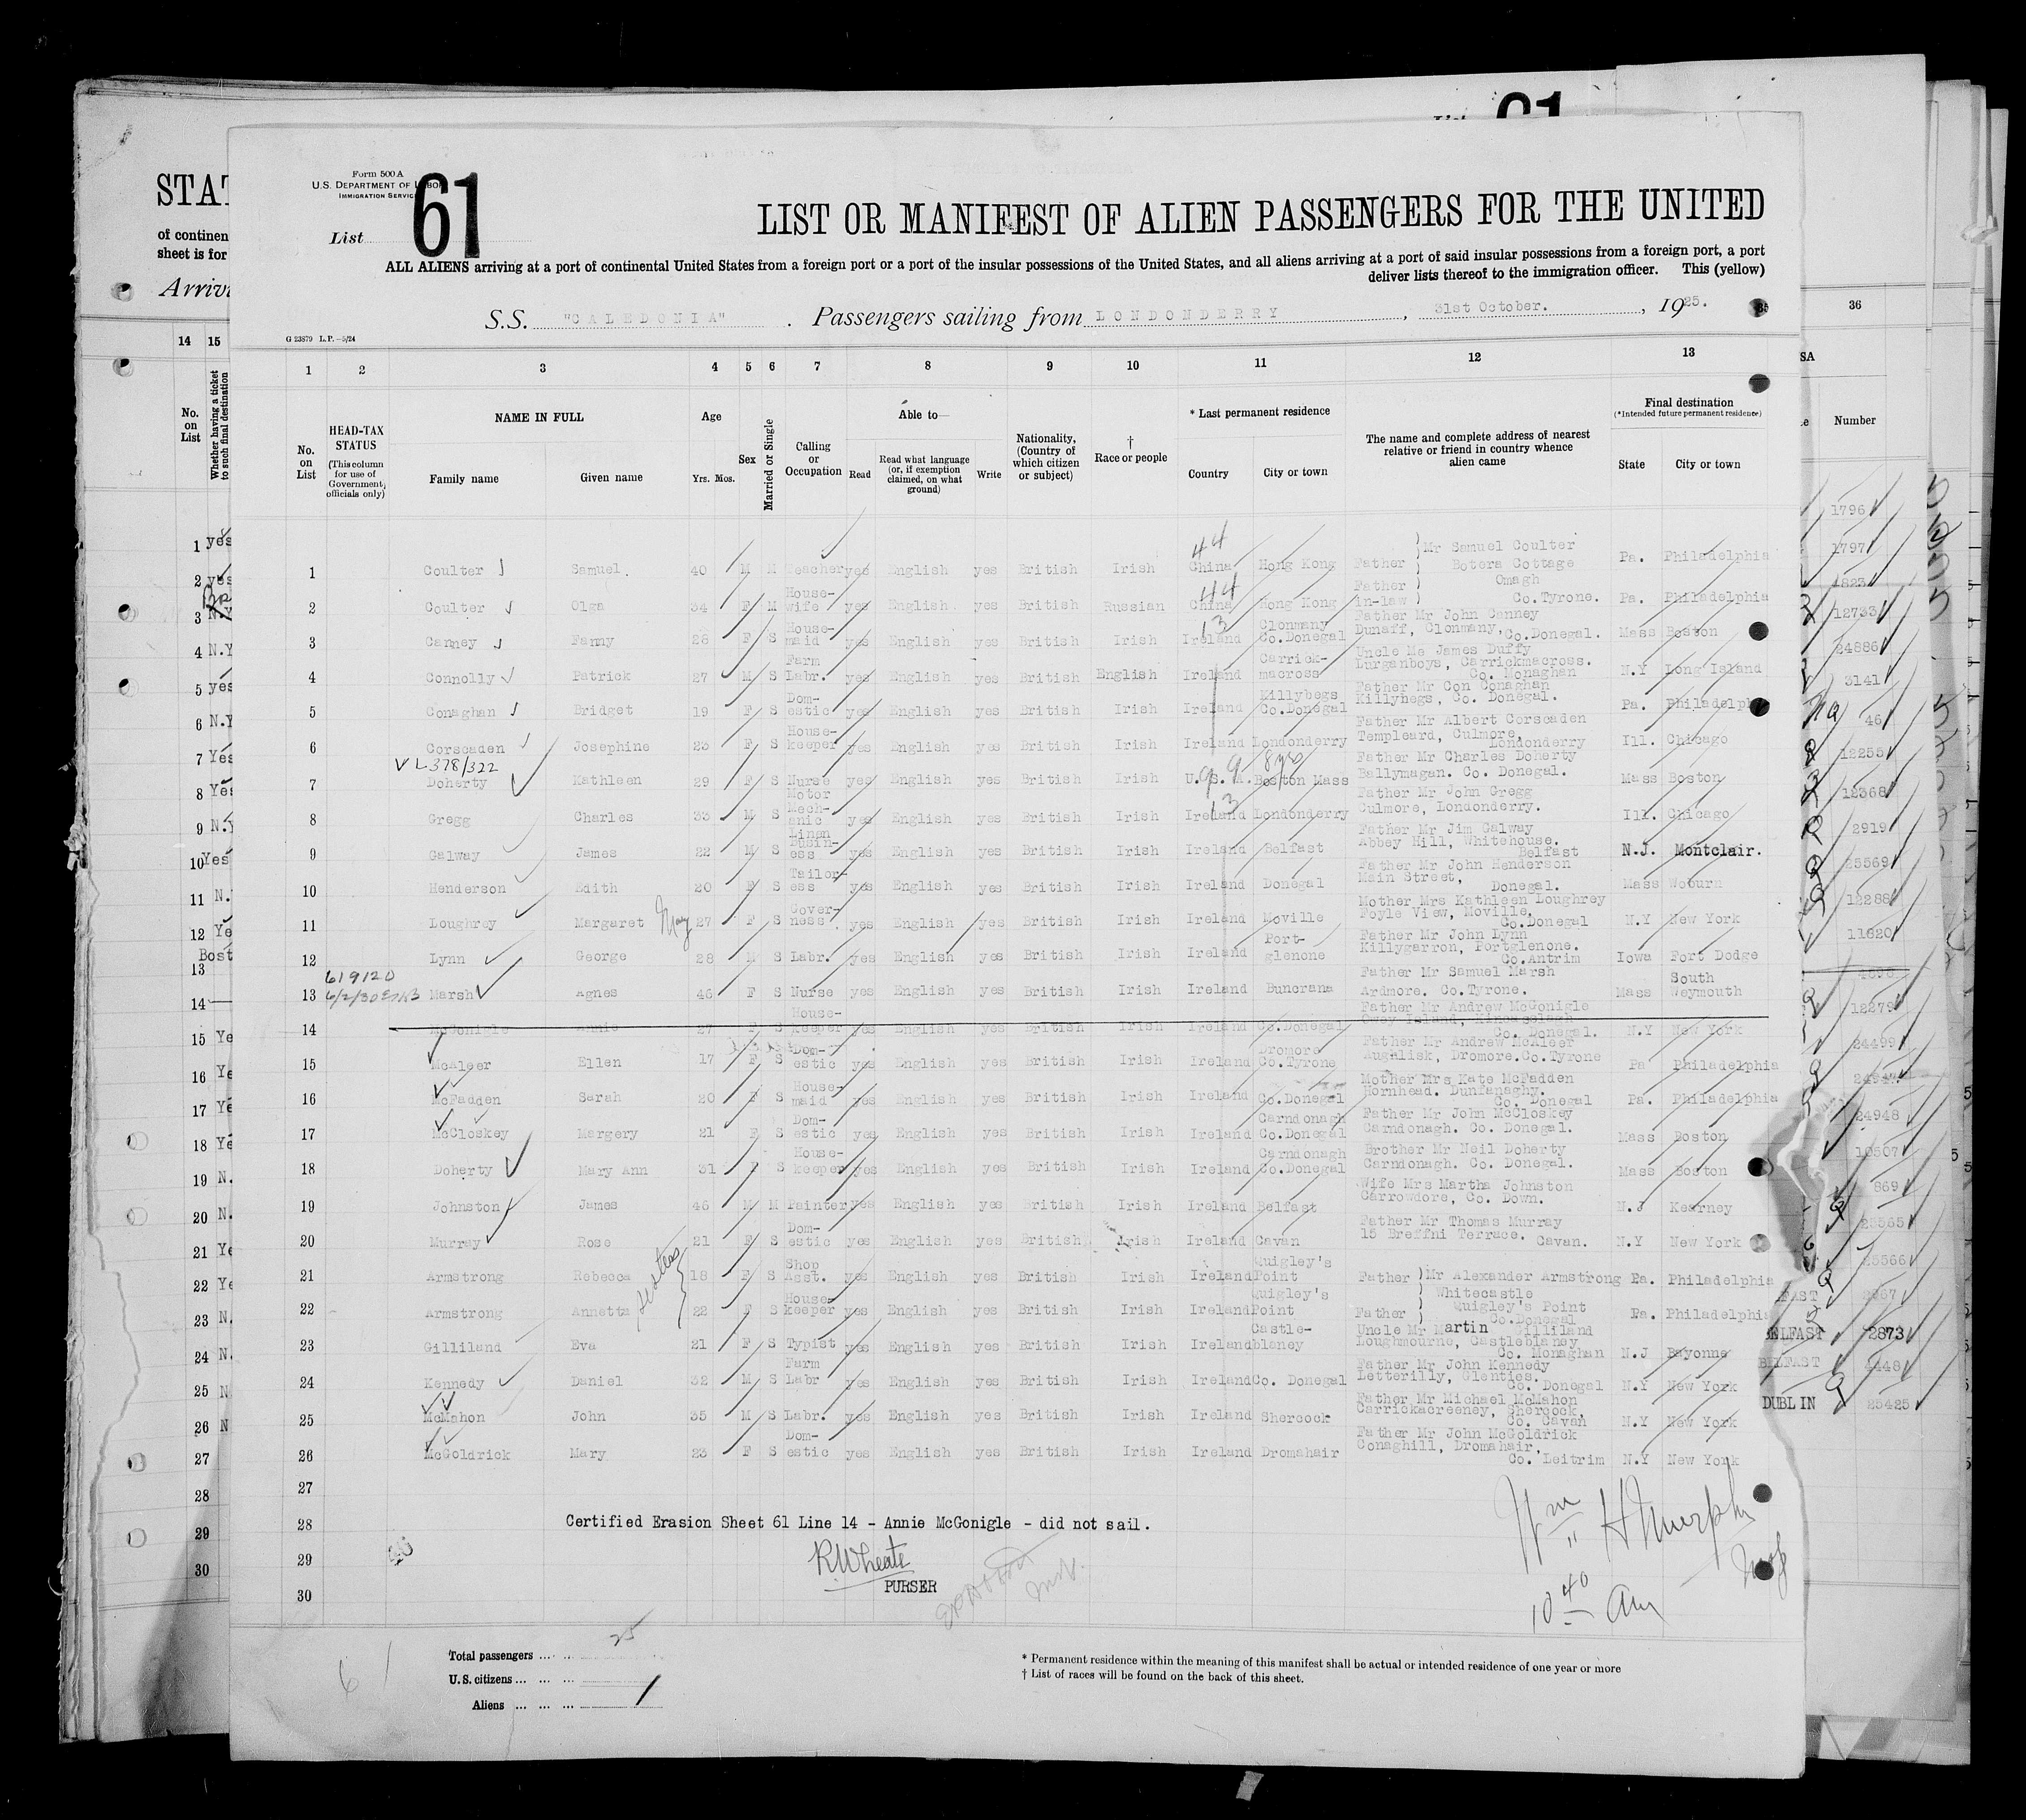 Form 500 A
U.S. DEPARTMENT OF LABOR
IMMIGRATION SERVICE
List 61
LIST OR MANIFEST OF ALIEN PASSENGERS FOR THE UNITED
ALL ALIENS arriving at a port of continental United States from a foreign port or a port of the insular possessions of the United States, and all aliens arriving at a port of said insular possessions from a foreign port, a port
deliver lists thereof to the immigration officer. This (yellow)
S.S. "CALEDONIA" . Passengers sailing from LONDONDERRY , 31st October. , 1925.
G 23879 L.P.-5/24
1 2 3 4 5 6 7 8 9 10 11 12 13
No. on List
HEAD-TAX STATUS
(This column for use of Government officials only)
NAME IN FULL
Family name Given name
Age
Yrs. Mos.
Sex
Married or Single
Calling or Occupation
Able to—
Read
Read what language (or, if exemption claimed, on what ground)
Write
Nationality, (Country of which citizen or subject)
† Race or people
* Last permanent residence
Country City or town
The name and complete address of nearest relative or friend in country whence alien came
Final destination
(*Intended future permanent residence)
State City or town
1 Coulter Samuel. 40 M M Teacher yes English yes British Irish China Hong Kong Father Mr Samuel Coulter Botera Cottage Pa. Philadelphia
2 Coulter Olga 34 F M House-wife yes English yes British Russian China Hong Kong Father in-law Omagh Co.Tyrone. Pa. Philadelphia
3 Canney Fanny 28 F S House-maid yes English yes British Irish Ireland Clonmany Co.Donegal Father Mr John Canney Dunaff, Clonmany, Co.Donegal. Mass Boston
4 Connolly Patrick 27 M S Farm Labr. yes English yes British English Ireland Carrick-macross Uncle Me James Duffy Lurganboys, Carrickmacross. Co. Monaghan N.Y Long Island
5 Conaghan Bridget 19 F S Dom-estic yes English yes British Irish Ireland Killybegs Co.Donegal Father Mr Con Conaghan Killybegs, Co. Donegal. Pa. Philadelph
6 Corscaden Josephine 23 F S House-keeper yes English yes British Irish Ireland Londonderry Father Mr Albert Corscaden Templeard, Culmore, Londonderry Ill. Chicago
V L-378/322
7 Doherty Kathleen 29 F S Nurse yes English yes British Irish U.S.A. Boston Mass Father Mr Charles Doherty Ballymagan. Co. Donegal. Mass Boston
8 Gregg Charles 33 M S Motor Mech-anic yes English yes British Irish Ireland Londonderry Father Mr John Gregg Culmore, Londonderry. Ill. Chicago
9 Galway James 22 M S Linen Busin-ess yes English yes British Irish Ireland Belfast Father Mr Jim Galway Abbey Hill, Whitehouse. Belfast N.J. Montclair.
10 Henderson Edith 20 F S Tailor-ess yes English yes British Irish Ireland Donegal Father Mr John Henderson Main Street, Donegal. Mass Woburn
11 Loughrey Margaret May 27 F S Gover-ness. yes English yes British Irish Ireland Moville Mother Mrs Kathleen Loughrey Foyle View, Moville, Co.Donegal N.Y New York
12 Lynn George 28 M S Labr. yes English yes British Irish Ireland Port-glenone Father Mr John Lynn Killygarron, Portglenone. Co.Antrim Iowa Fort Dodge
619120
13 Marsh Agnes 46 F S Nurse yes English yes British Irish Ireland Buncrana Father Mr Samuel Marsh Ardmore. Co.Tyrone. Mass South Weymouth
14 McGonigle Annie 27 F S House-keeper yes English yes British Irish Ireland Co.Donegal Father Mr Andrew McGonigle Co. Donegal. N.Y New York
15 McAleer Ellen 17 F S Dom-estic yes English yes British Irish Ireland Dromore Co.Tyrone Father Mr Andrew McAleer Aughlisk, Dromore.Co.Tyrone Pa Philadelphia
16 McFadden Sarah 20 F S House-maid yes English yes British Irish Ireland Co.Donegal Mother Mrs Kate McFadden Hornhead. Dunfanaghy. Co. Donegal Pa. Philadelphia
17 McCloskey Margery 21 F S Dom-estic yes English yes British Irish Ireland Carndonagh Co.Donegal Father Mr John McCloskey Carndonagh. Co. Donegal. Mass Boston
18 Doherty Mary Ann 31 F S House-keeper yes English yes British Irish Ireland Carndonagh Co.Donegal Brother Mr Neil Doherty Carndonagh. Co. Donegal. Mass Boston
19 Johnston James 46 M M Painter yes English yes British Irish Ireland Belfast Wife Mrs Martha Johnston Carrowdore, Co. Down. N.J Kearney
20 Murray Rose 21 F S Dom-estic yes English yes British Irish Ireland Cavan Father Mr Thomas Murray 15 Breffni Terrace. Cavan. N.Y New York
21 Armstrong Rebecca sisters 18 F S Shop Asst. yes English yes British Irish Ireland Quigley's Point Father Mr Alexander Armstrong Whitecastle Pa. Philadelphia
22 Armstrong Annetta 22 F S House-keeper yes English yes British Irish Ireland Quigley's Point Father Quigley's Point Co.Donegal Pa. Philadelphia
23 Gilliland Eva 21 F S Typist yes English yes British Irish Ireland Castle-blaney Uncle Mr Martin Gilliland Loughmourne, Castleblaney Co. Monaghan N.J Bayonne
24 Kennedy Daniel 32 M S Farm Labr yes English yes British Irish Ireland Co. Donegal Father Mr John Kennedy Letterilly, Glenties. Co. Donegal N.Y New York
25 McMahon John 35 M S Labr. yes English yes British Irish Ireland Shercock Father Mr Michael McMahon Carrickacreeney, Shercock Co. Cavan N.Y New York
26 McGoldrick Mary 23 F S Dom-estic yes English yes British Irish Ireland Dromahair Father Mr John McGoldrick Conaghill, Dromahair, Co. Leitrim N.Y New York
27
28 Certified Erasion Sheet 61 Line 14 - Annie McGonigle - did not sail.
29 RWheate
PURSER
30
Wm H Murphy
10 40 am
Total passengers 25
U.S. citizens
Aliens
61
* Permanent residence within the meaning of this manifest shall be actual or intended residence of one year or more
† List of races will be found on the back of this sheet.
STAT
of continen
sheet is for
Arriv
14 15
No. on List
Whether having a ticket to such final destination
36
Number
1796
1797
4823
12733
24886
3141
46
12255
12368
2919
25569
12288
11820
12279
24499
24947
24948
10507
869
25565
25566
2967
BELFAST 2873
BELFAST 4448
DUBLIN 25425